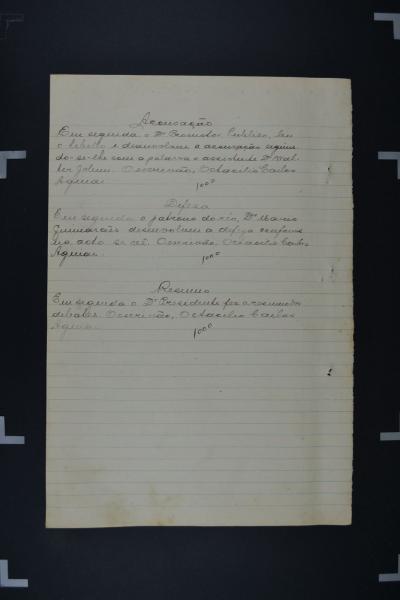 Accusação
Em seguida o Dr Promotor Publico, leu
o libello e desenvolveu a accusação seguin
do-se-lhe com a palavra o assistente Dr Wal
ter Jobim. O escrivão, Octacilio Carlos
Aguiar.
1000
Defesa
Em seguida o patrono do réo, Dr Mario
Guimarães desenvolveu a defeza
O escrivão, Octacilio Carlos
Aguiar.
1000
Resumo
Em seguida o Dr Presidente fez o resumo dos
debates. O escrivão, Octacilio Carlos
Aguiar.
1000